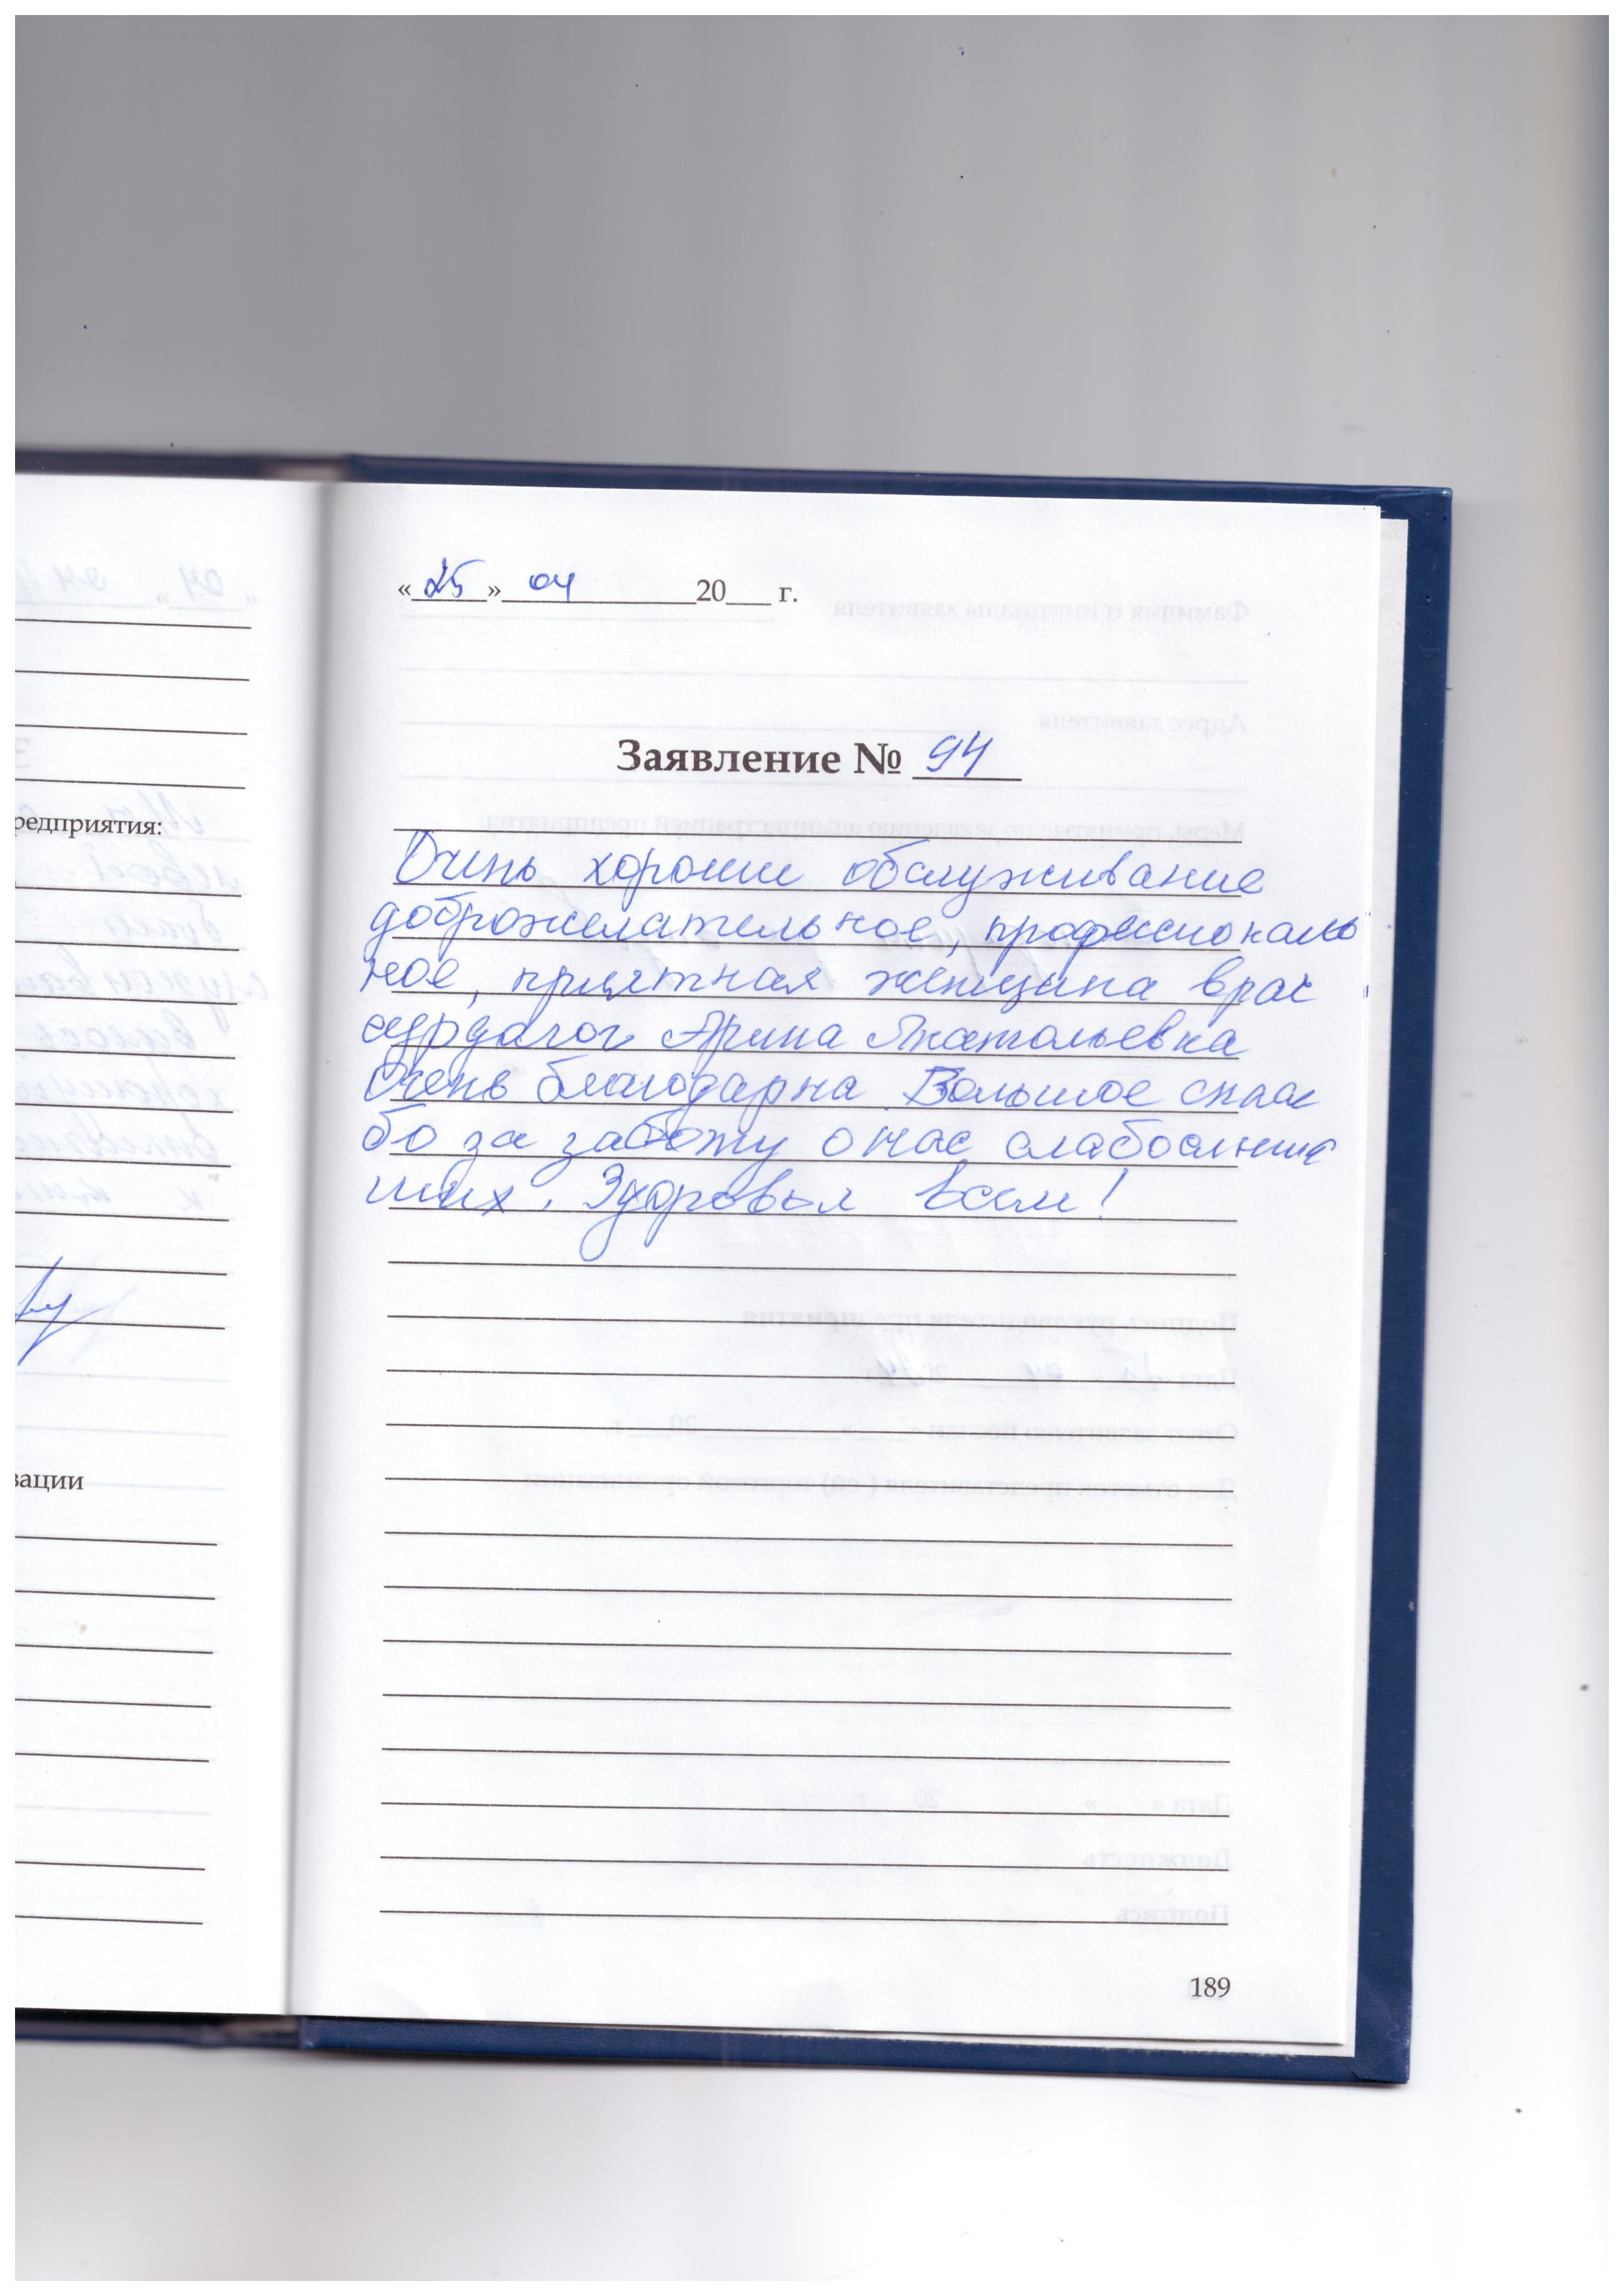 «25» 04 20___ г.
Заявление № 94
редприятия:
Очень хорошие обслуживание
доброжелательное, профессиональ
ное, приятная женщина врач
сурдолог Арина Анатольевна
Очень благодарна Большое спаси
бо за заботу о нас слабослыша
щих. Здоровья всем!
зации
189